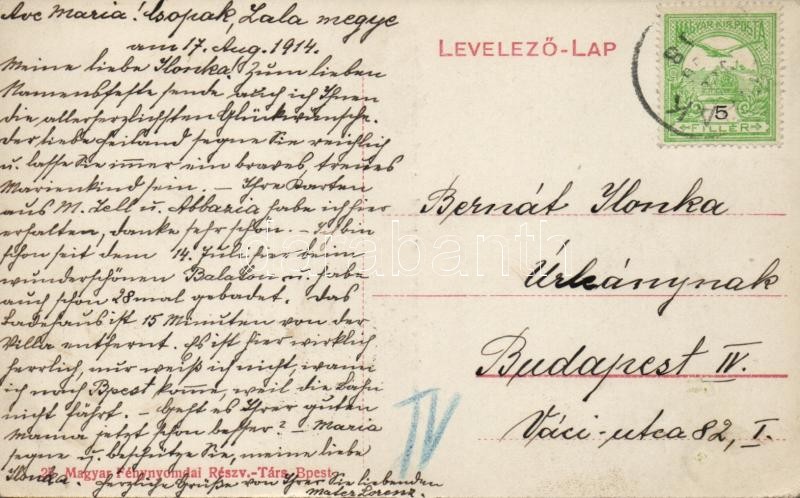 Ave Maria! Csopak, Zala megye
am 17. Aug. 1914.
Meine liebe Ilonka! Zum lieben
Namensfeste sende auch ich Ihnen
die allerherzlichsten Glückwünsche.
Der liebe Heiland segne Sie reichlich
u. lasse Sie immer ein braves, treues
Marienkind sein. – Ihre Karten
aus M. Zell u. Abbazia habe ich hier
erhalten, danke sehr schön. – Ich bin
schon seit dem 14. Juli hier beim
wunderschönen Balaton u. habe
auch schon 28 mal gebadet. Das
Badehaus ist 15 Minuten von der
Villa entfernt. Es ist hier wirklich
herrlich, nur weiß ich nicht, wann
ich nach Bpest komme, weil die Bahn
nicht fährt. – Geht es Ihrer guten
Mama jetzt schon besser? – Maria
segne u. beschütze Sie, meine liebe
Ilonka. Herzliche Grüße von Ihrer Sie liebenden
Mater Lorenz.
Magyar Fénynyomdai Részv.-Társ. Bpest
LEVELEZŐ-LAP
MAGYAR KIR. POSTA
5
FILLÉR
Bernát Ilonka
Úrleánynak
Budapest IV.
Váci-utca 82, I.
IV
darabanth